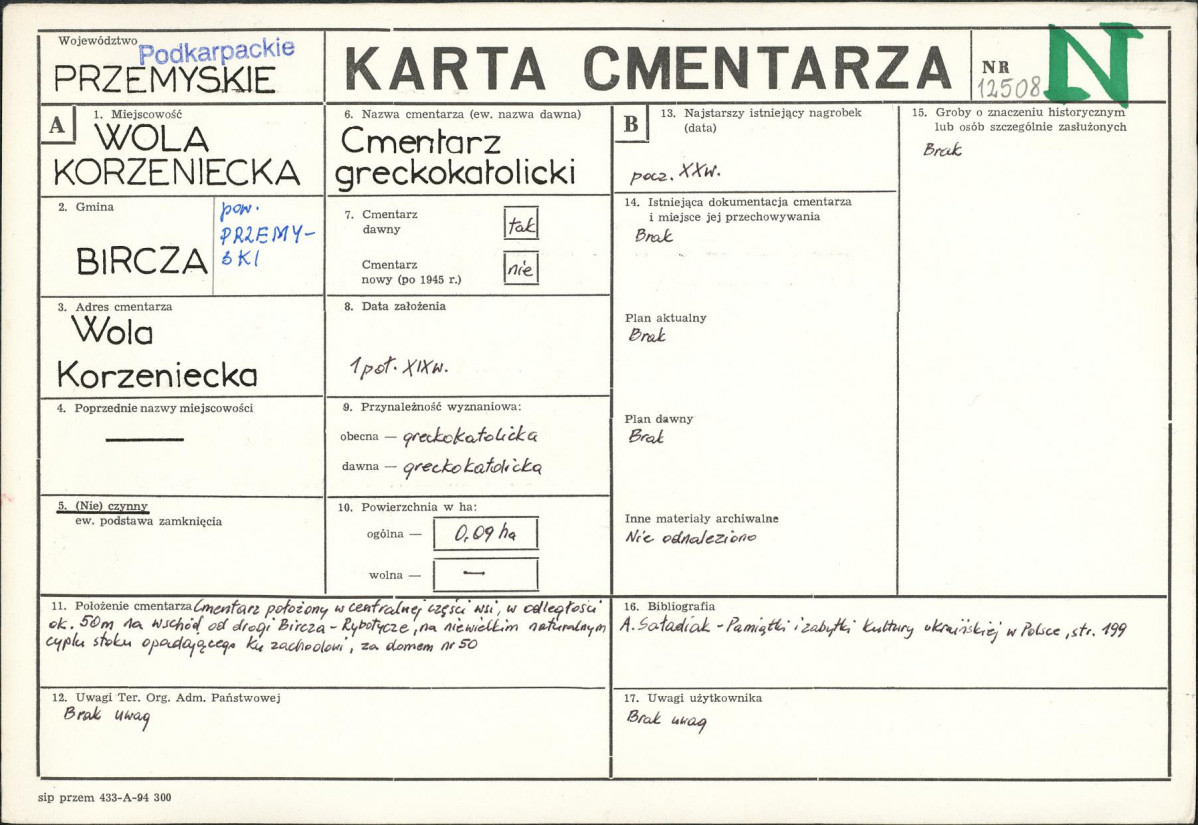 Województwo Podkarpackie
PRZEMYSKIE
KARTA CMENTARZA
NR
12508
N
A
1. Miejscowość
WOLA
KORZENIECKA
2. Gmina
BIRCZA
pow.
PRZEMY-
SKI
3. Adres cmentarza
Wola
Korzeniecka
4. Poprzednie nazwy miejscowości
—
5. (Nie) czynny
ew. podstawa zamknięcia
6. Nazwa cmentarza (ew. nazwa dawna)
Cmentarz
greckokatolicki
7. Cmentarz
dawny
tak
Cmentarz
nowy (po 1945 r.)
nie
8. Data założenia
1 poł. XIXw.
9. Przynależność wyznaniowa:
obecna — greckokatolicka
dawna — greckokatolicka
10. Powierzchnia w ha:
ogólna — 0,09 ha
wolna — —
B
13. Najstarszy istniejący nagrobek
(data)
pocz. XXw.
14. Istniejąca dokumentacja cmentarza
i miejsce jej przechowywania
Brak
Plan aktualny
Brak
Plan dawny
Brak
Inne materiały archiwalne
Nie odnaleziono
15. Groby o znaczeniu historycznym
lub osób szczególnie zasłużonych
Brak
11. Położenie cmentarza Cmentarz położony w centralnej części wsi, w odległości
ok. 50m na wschód od drogi Bircza - Rybotycze, na niewielkim naturalnym
cyplu stoku opadającego ku zachodowi, za domem nr 50
12. Uwagi Ter. Org. Adm. Państwowej
Brak uwag
16. Bibliografia
A. Saładiak - Pamiątki i zabytki kultury ukraińskiej w Polsce, str. 199
17. Uwagi użytkownika
Brak uwag
sip przem 433-A-94 300